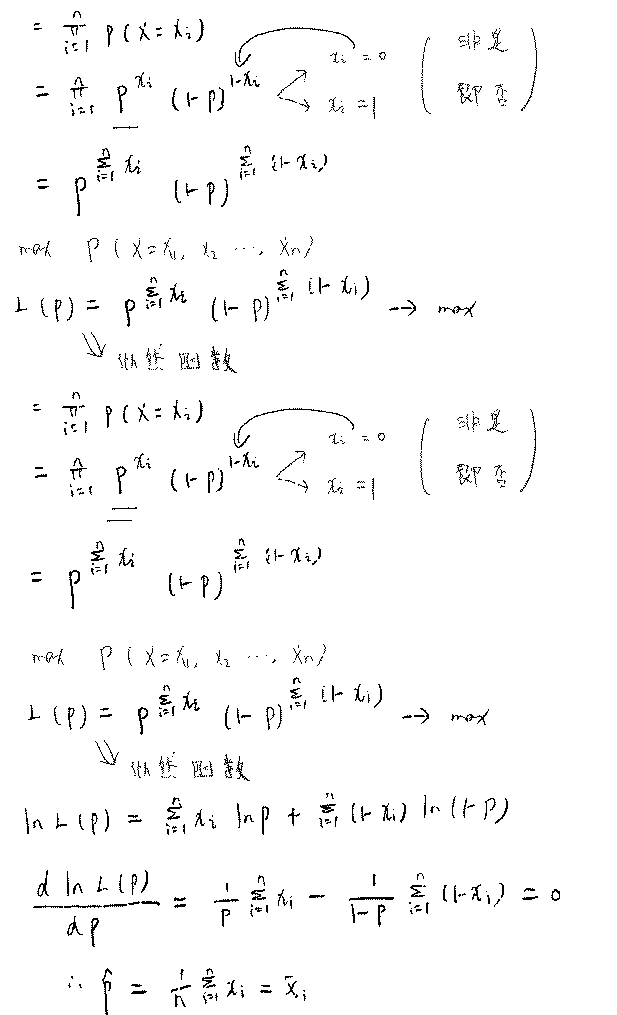 = ∏_{i=1}^{n} P(X=x_i)
= ∏_{i=1}^{n} p^{x_i} (1-p)^{1-x_i} x_i=0 x_i=1 (非是 即否)
= p^{∑_{i=1}^{n} x_i} (1-p)^{∑_{i=1}^{n} (1-x_i)}
max P(X=x_1, x_2 ⋯, x_n)
L(p) = p^{∑_{i=1}^{n} x_i} (1-p)^{∑_{i=1}^{n} (1-x_i)} → max
⇓ 似然函数
= ∏_{i=1}^{n} P(X=x_i)
= ∏_{i=1}^{n} p^{x_i} (1-p)^{1-x_i} x_i=0 x_i=1 (非是 即否)
= p^{∑_{i=1}^{n} x_i} (1-p)^{∑_{i=1}^{n} (1-x_i)}
max P(X=x_1, x_2 ⋯, x_n)
L(p) = p^{∑_{i=1}^{n} x_i} (1-p)^{∑_{i=1}^{n} (1-x_i)} → max
⇓ 似然函数
ln L(p) = ∑_{i=1}^{n} x_i ln p + ∑_{i=1}^{n} (1-x_i) ln(1-p)
d ln L(p) / dp = 1/p ∑_{i=1}^{n} x_i - 1/(1-p) ∑_{i=1}^{n} (1-x_i) = 0
∴ p̂ = 1/n ∑_{i=1}^{n} x_i = x̄_i